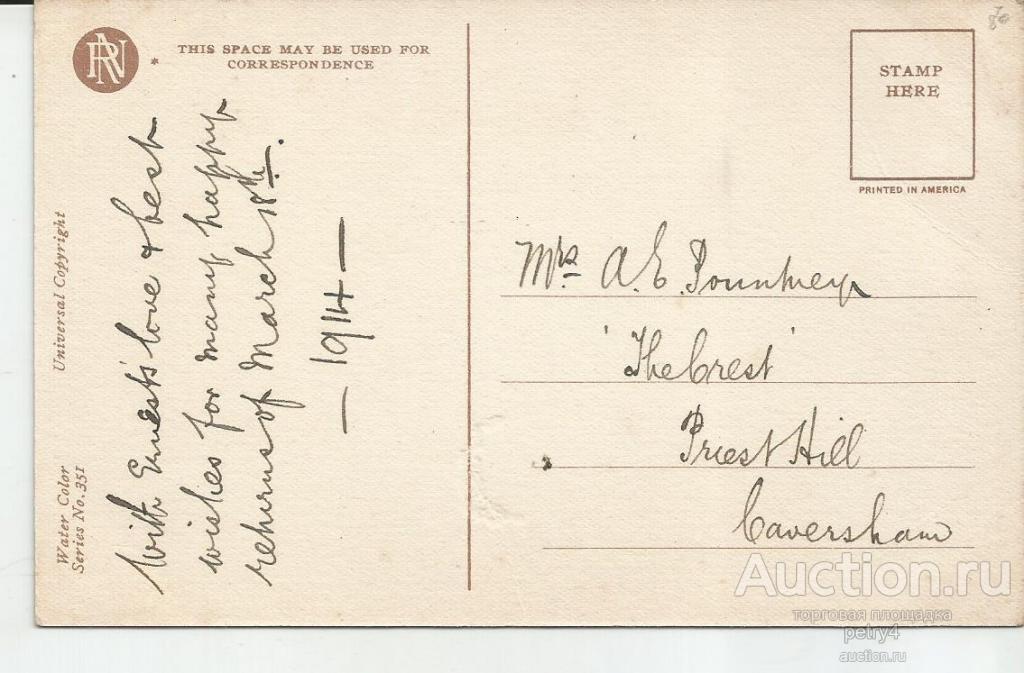 RN
THIS SPACE MAY BE USED FOR
CORRESPONDENCE
With Ernest's love & best
wishes for many happy
returns of March 18th.
— 1914 —
Universal Copyright
Water Color
Series No. 351
STAMP
HERE
PRINTED IN AMERICA
Mrs A. E. Pountney
'The Crest'
Priest Hill
Caversham
Auction.ru
торговая площадка
petry4
auction.ru